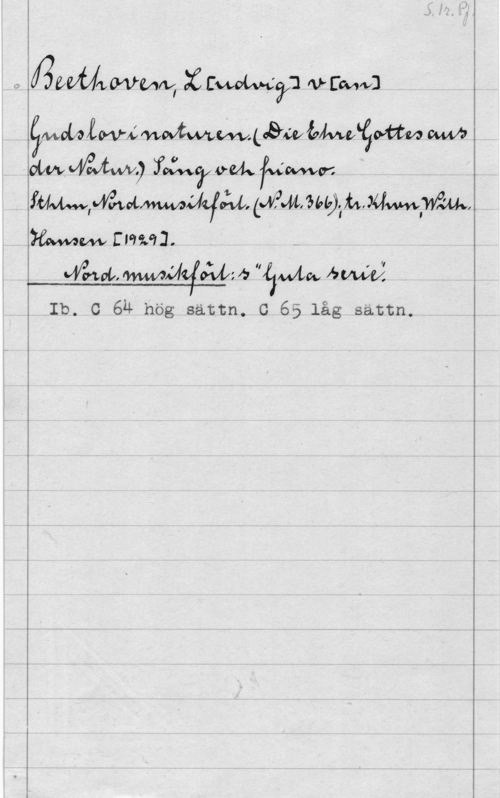 S. 1r. Pf.
Beethoven, L[udvig] v[an]
Guds lov i naturen. (Die Ehre Gottes aus
der Natur.) Sång och piano.
Sthlm, Nord. musikförl. (N.M. 366); tr. Khvn, Wilh.
Hansen [1929].
Nord. musikförl:s "Gula serie".
Ib. C 64 hög sättn. C 65 låg sättn.